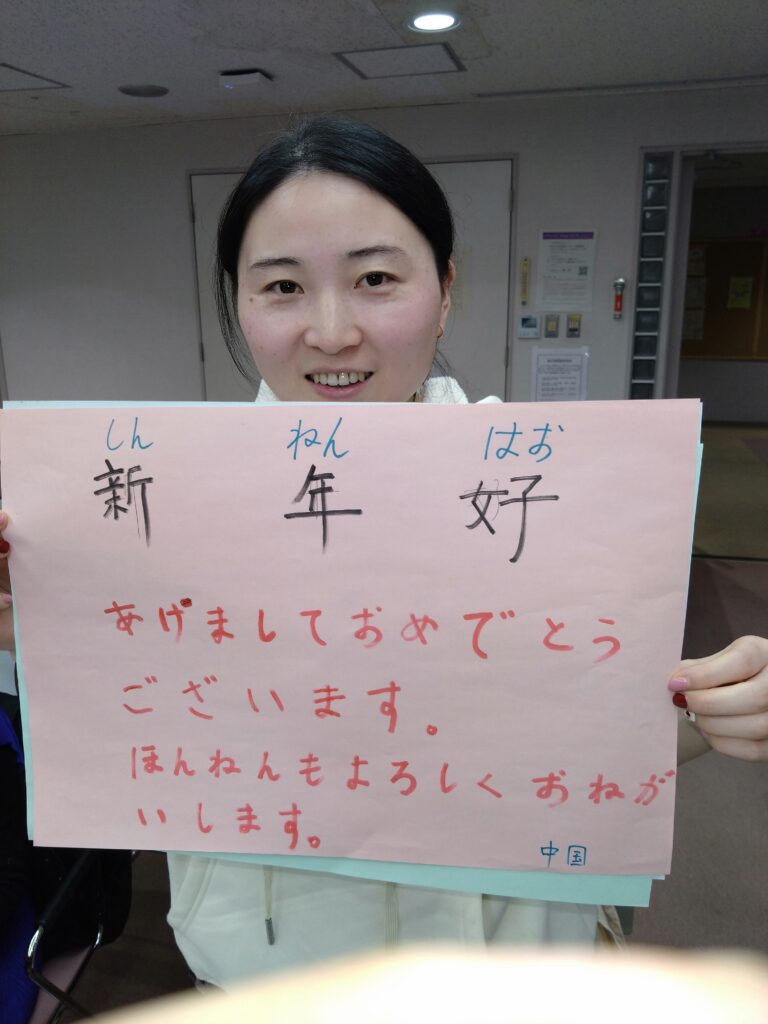 しん ねん はお
新年好
あげましておめでとう
ございます。
ほんねんもよろしくおねが
いします。
中国